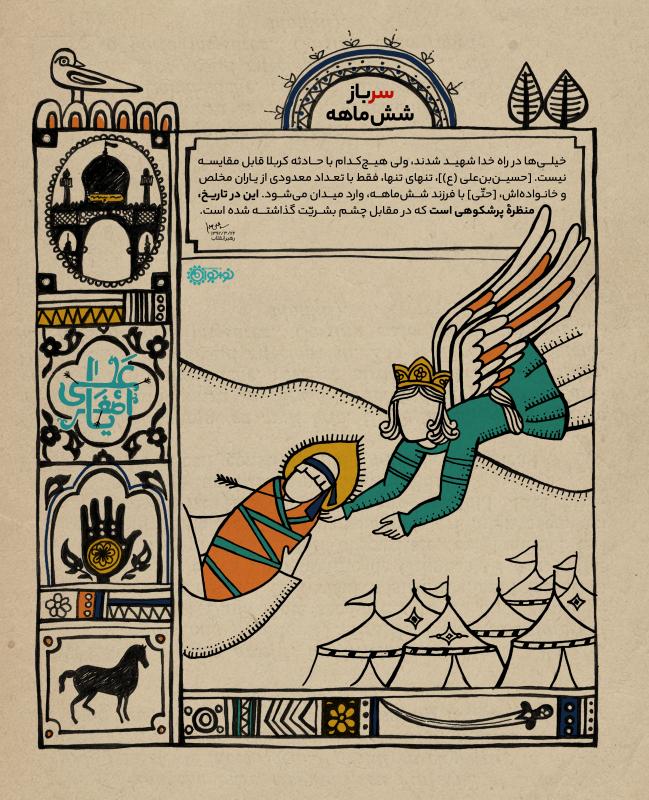 سرباز
شش‌ماهه
خیلی‌ها در راه خدا شهید شدند، ولی هیچ‌کدام با حادثه کربلا قابل مقایسه
نیست. [حسین‌بن‌علی (ع)]، تنهای تنها، فقط با تعداد معدودی از یاران مخلص
و خانواده‌اش، [حتّی] با فرزند شش‌ماهه، وارد میدان می‌شود. این در تاریخ،
منظرهٔ پرشکوهی است که در مقابل چشم بشریّت گذاشته شده است.
رهبر انقلاب
نوجوان
علی
اصغر